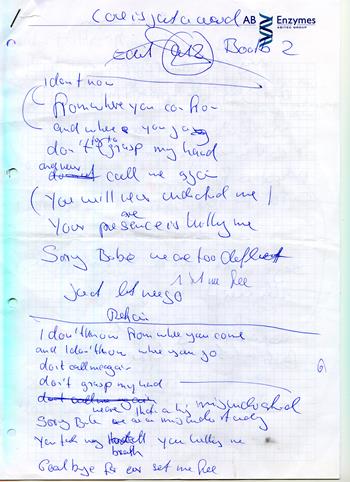 Love is just a word
AB Enzymes
912 Book 2
I dont now
From where you com from
and where you going
don't grasp my hand
and never call me again
(You will never understand me)
Your presence is killing me
Sorry Babe we are too different
Just let me go
let me free
Refrain
I don't know From where you come
and I don't know where you go
don't call me again
don't grasp my hand
misunderstand
Sorry Babe
You take my breath you killing me
Goodbye for ever set me free